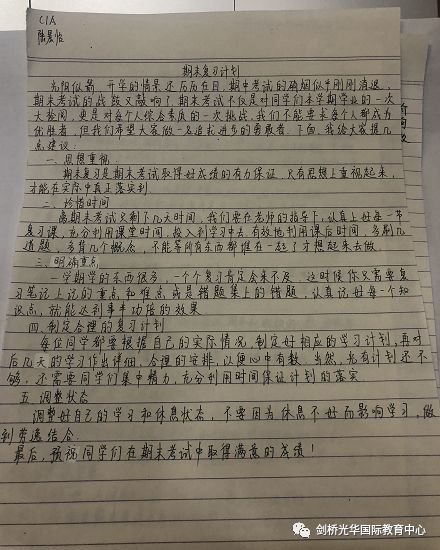 C1A
陆景怡
期末复习计划
光阴似箭，开学的情景还历历在目，期中考试的硝烟似乎刚刚消退，
期末考试的战鼓又敲响了！期末考试不仅是对同学们本学期学业的一次
大检阅，更是对每个人综合素质的一次挑战，我们不能要求每个人都成为
优胜者，但我们希望大家做一名追求进步的勇敢者。下面，我给大家提几
点建议：
一、思想重视
期末复习是期末考试取得好成绩的有力保证，只有思想上重视起来，
才能在实际中真正落实到
二、珍惜时间
离期末考试只剩下几天时间，我们要在老师的指导下，认真上好每一节
复习课，充分利用课堂时间，投入到学习中去，有效地利用课后时间，多刷几
道题，多背几个概念，不能等所有东西都堆在一起了才想起来去做
三、明确重点
一学期学的东西很多，一个个复习肯定会来不及，这时候你只需要复
习笔记上记的重点和难点或是错题集上的错题，认真记好每一个知
识点，就能达到事半功倍的效果
四、制定合理的复习计划
每位同学都要根据自己的实际情况，制定好相应的学习计划，再对
后几天的学习作出详细、合理的安排，以便心中有数，当然，光有计划还不
够，还需要同学们集中精力，充分利用时间保证计划的落实
五、调整状态
调整好自己的学习和休息状态，不要因为休息不好而影响学习，做
到劳逸结合
最后，预祝同学们在期末考试中取得满意的成绩！
剑桥光华国际教育中心